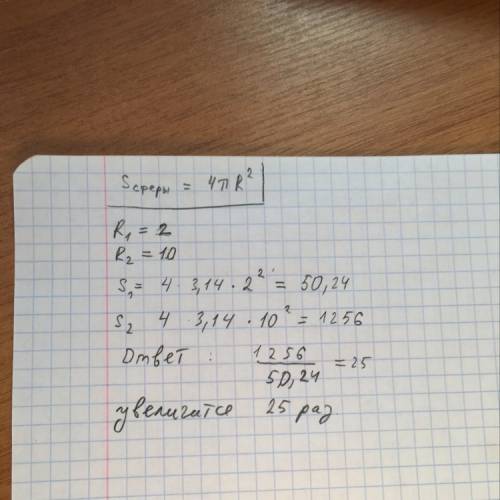 Sсферы = 4πR²
R₁ = 2
R₂ = 10
S₁ = 4 · 3,14 · 2² = 50,24
S₂ 4 · 3,14 · 10² = 1256
Ответ : 1256/50,24 = 25
увеличатсе 25 раз